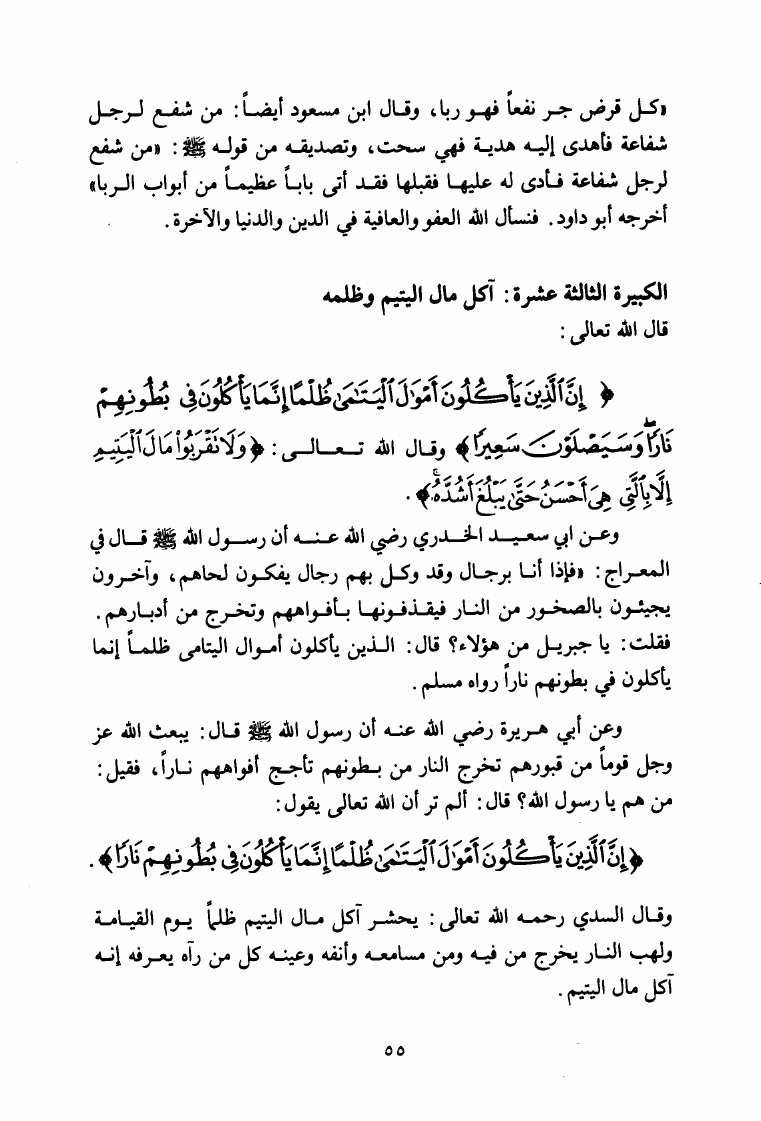 «كل قرض جر نفعاً فهو ربا، وقال ابن مسعود أيضاً: من شفع لرجل
شفاعة فأهدى إليه هدية فهي سحت، وتصديقه من قوله ﷺ: «من شفع
لرجل شفاعة فأدى له عليها فقبلها فقد أتى باباً عظيماً من أبواب الربا»
أخرجه أبو داود. فنسأل الله العفو والعافية في الدين والدنيا والآخرة.
الكبيرة الثالثة عشرة: آكل مال اليتيم وظلمه
قال الله تعالى:
﴿ إِنَّ ٱلَّذِينَ يَأْكُلُونَ أَمْوَٰلَ ٱلْيَتَٰمَىٰ ظُلْمًا إِنَّمَا يَأْكُلُونَ فِى بُطُونِهِمْ
نَارًاۖ وَسَيَصْلَوْنَ سَعِيرًا﴾ وقال الله تعالى: ﴿وَلَا تَقْرَبُوا۟ مَالَ ٱلْيَتِيمِ
إِلَّا بِٱلَّتِى هِىَ أَحْسَنُ حَتَّىٰ يَبْلُغَ أَشُدَّهُۥۚ﴾.
وعن ابي سعيد الخدري رضي الله عنه أن رسول الله ﷺ قال في
المعراج: «فإذا أنا برجال وقد وكل بهم رجال يفكون لحاهم، وآخرون
يجيئون بالصخور من النار فيقذفونها بأفواههم وتخرج من أدبارهم.
فقلت: يا جبريل من هؤلاء؟ قال: الذين يأكلون أموال اليتامى ظلماً إنما
يأكلون في بطونهم ناراً رواه مسلم.
وعن أبي هريرة رضي الله عنه أن رسول الله ﷺ قال: يبعث الله عز
وجل قوماً من قبورهم تخرج النار من بطونهم تأجج أفواههم ناراً، فقيل:
من هم يا رسول الله؟ قال: ألم تر أن الله تعالى يقول:
﴿إِنَّ ٱلَّذِينَ يَأْكُلُونَ أَمْوَٰلَ ٱلْيَتَٰمَىٰ ظُلْمًا إِنَّمَا يَأْكُلُونَ فِى بُطُونِهِمْ نَارًا﴾.
وقال السدي رحمه الله تعالى: يحشر آكل مال اليتيم ظلماً يوم القيامة
ولهب النار يخرج من فيه ومن مسامعه وأنفه وعينه كل من رآه يعرفه إنه
آكل مال اليتيم.
٥٥